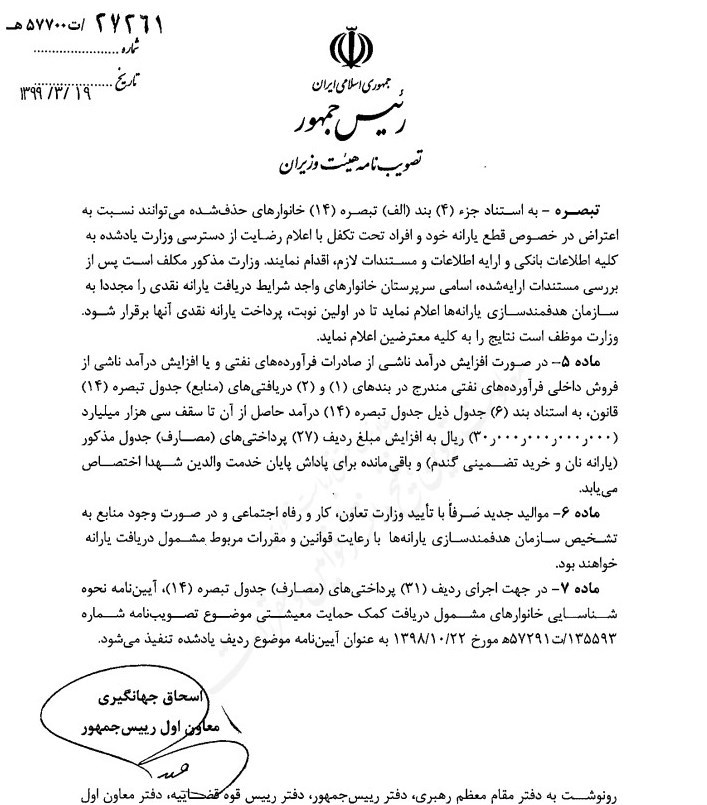 ۲۷۲۶۱ /ت۵۷۷۰۰هـ
شماره ......................
تاریخ ......................
۱۳۹۹/۳/۱۹
جمهوری اسلامی ایران
رئیس جمهور
تصویب نامه هیئت وزیران
تبصره - به استناد جزء (۴) بند (الف) تبصره (۱۴) خانوارهای حذف‌شده می‌توانند نسبت به
اعتراض در خصوص قطع یارانه خود و افراد تحت تکفل با اعلام رضایت از دسترسی وزارت یادشده به
کلیه اطلاعات بانکی و ارایه اطلاعات و مستندات لازم، اقدام نمایند. وزارت مذکور مکلف است پس از
بررسی مستندات ارایه‌شده، اسامی سرپرستان خانوارهای واجد شرایط دریافت یارانه نقدی را مجددا به
سازمان هدفمندسازی یارانه‌ها اعلام نماید تا در اولین نوبت، پرداخت یارانه نقدی آنها برقرار شود.
وزارت موظف است نتایج را به کلیه معترضین اعلام نماید.
ماده ۵- در صورت افزایش درآمد ناشی از صادرات فرآورده‌های نفتی و یا افزایش درآمد ناشی از
فروش داخلی فرآورده‌های نفتی مندرج در بندهای (۱) و (۲) دریافتی‌های (منابع) جدول تبصره (۱۴)
قانون، به استناد بند (۶) جدول ذیل جدول تبصره (۱۴) درآمد حاصل از آن تا سقف سی هزار میلیارد
(۳۰٫۰۰۰٫۰۰۰٫۰۰۰٫۰۰۰) ریال به افزایش مبلغ ردیف (۲۷) پرداختی‌های (مصارف) جدول مذکور
(یارانه نان و خرید تضمینی گندم) و باقی‌مانده برای پاداش پایان خدمت والدین شهدا اختصاص
می‌یابد.
ماده ۶- موالید جدید صَرفاً با تأیید وزارت تعاون، کار و رفاه اجتماعی و در صورت وجود منابع به
تشخیص سازمان هدفمندسازی یارانه‌ها با رعایت قوانین و مقررات مربوط مشمول دریافت یارانه
خواهند بود.
ماده ۷- در جهت اجرای ردیف (۳۱) پرداختی‌های (مصارف) جدول تبصره (۱۴)، آیین‌نامه نحوه
شناسایی خانوارهای مشمول دریافت کمک حمایت معیشتی موضوع تصویب‌نامه شماره
۱۳۵۵۹۳/ت۵۷۲۹۱ه‍ مورخ ۱۳۹۸/۱۰/۲۲ به عنوان آیین‌نامه موضوع ردیف یادشده تنفیذ می‌شود.
اسحاق جهانگیری
معاون اول رییس‌جمهور
رونوشت به دفتر مقام معظم رهبری، دفتر رییس‌جمهور، دفتر رییس قوه قضاییه، دفتر معاون اول